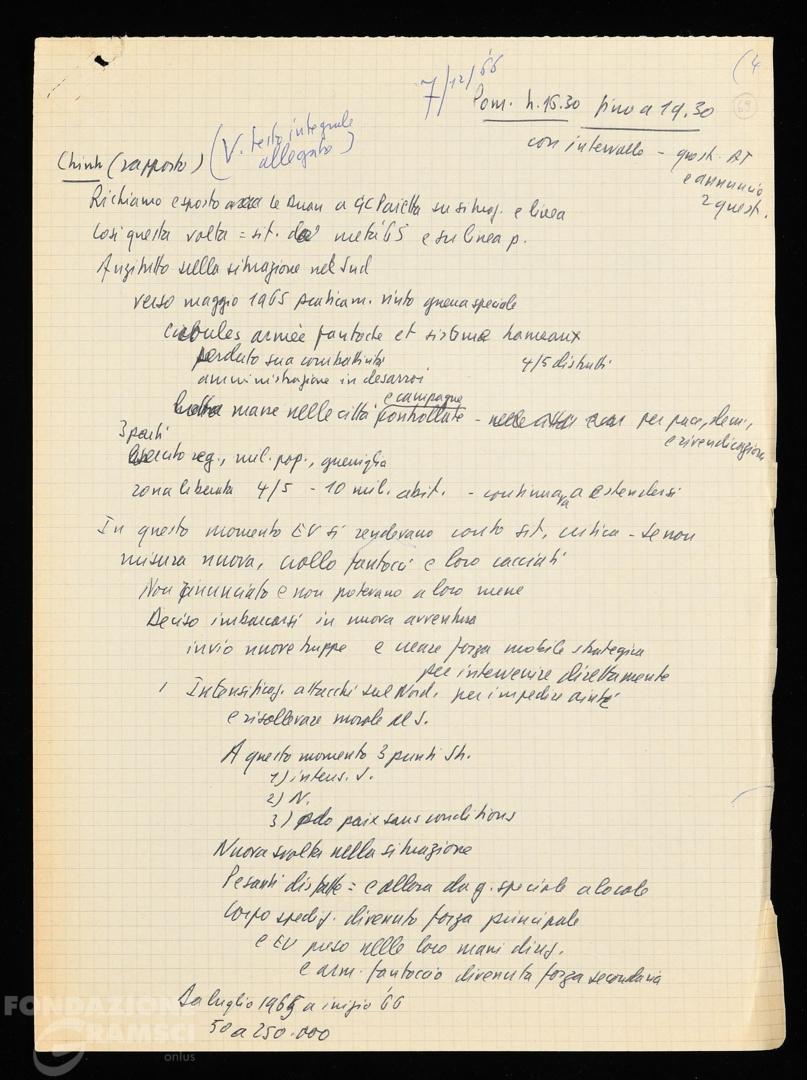 (4
7/12/66
Pom. h. 15.30 fino a 19.30
69
con intervallo - quest. AT
e annuncio
2 quest.
Chinh (rapporto) (V. testo integrale
allegato)
Richiamo esposto Le Duan a GC Pajetta su situaz. e linea
Così questa volta = sit. da metà 65 e su linea p.
Anzitutto sulla situazione nel Sud
verso maggio 1965 praticam. vinto guerra speciale
armée fantoche et sistème hameaux
perduto sua combattività 4/5 distrutti
amministrazione in desarroi
e campagne
masse nelle città controllate - per pace, dem.,
e rivendicazioni
3 parti
esercito reg., mil. pop., guerriglia
zona liberata 4/5 - 10 mil. abit. - continuava a estendersi
In questo momento EU si rendevano conto sit. critica - se non
misura nuova, crollo fantocci e loro cacciati
Non rinunciato e non potevano a loro mene
Deciso imbarcarsi in nuova avventura
invio nuove truppe e creare forza mobile strategica
per intervenire direttamente
Intensificaz. attacchi sul Nord. per impedire aiuti
e risollevare morale al S.
A questo momento 3 punti Sh.
1) intens. S.
2) N.
3) paix sans conditions
Nuova svolta nella situazione
Pesanti disfatte = e allora da g. speciale a locale
Corpo spediz. divenuto forza principale
e EU preso nelle loro mani direz.
e arm. fantoccio divenuta forza secondaria
Da luglio 1965 a inizio 66
50 a 250.000
FONDAZIONE
GRAMSCI
onlus